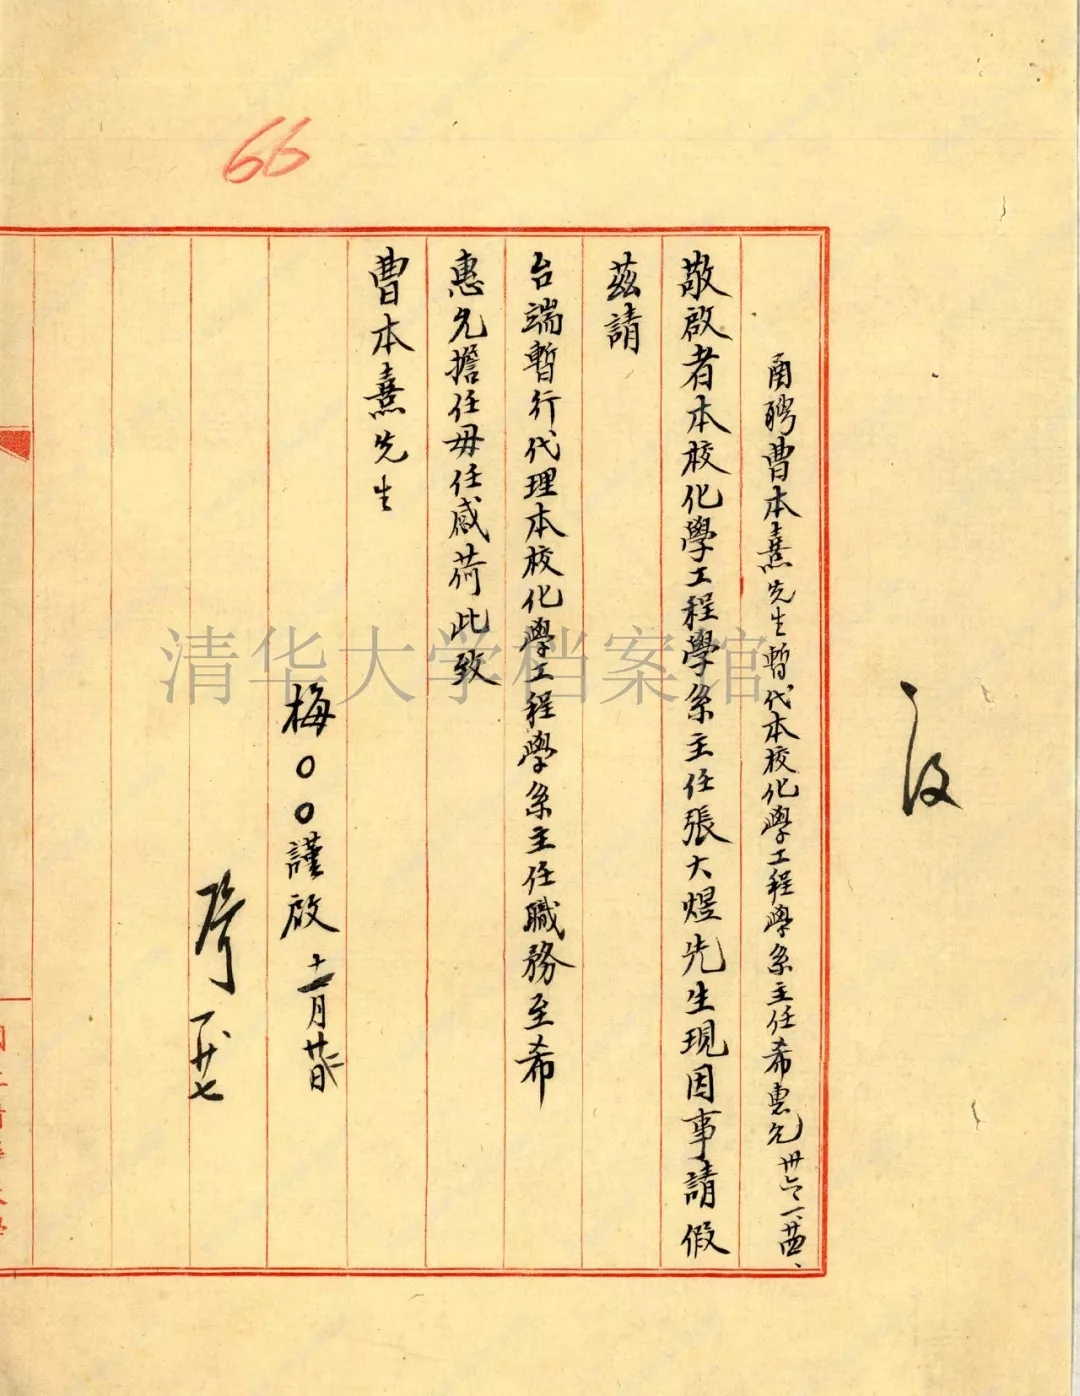 函聘曹本熹先生暫代本校化學工程學系主任希惠允 卅六、一、廿四、
敬啟者本校化學工程學系主任張大煜先生現因事請假
茲請
台端暫行代理本校化學工程學系主任職務至希
惠允擔任毋任感荷此致
曹本熹先生
梅〇〇謹啟 十一月 日
66
清华大学档案馆